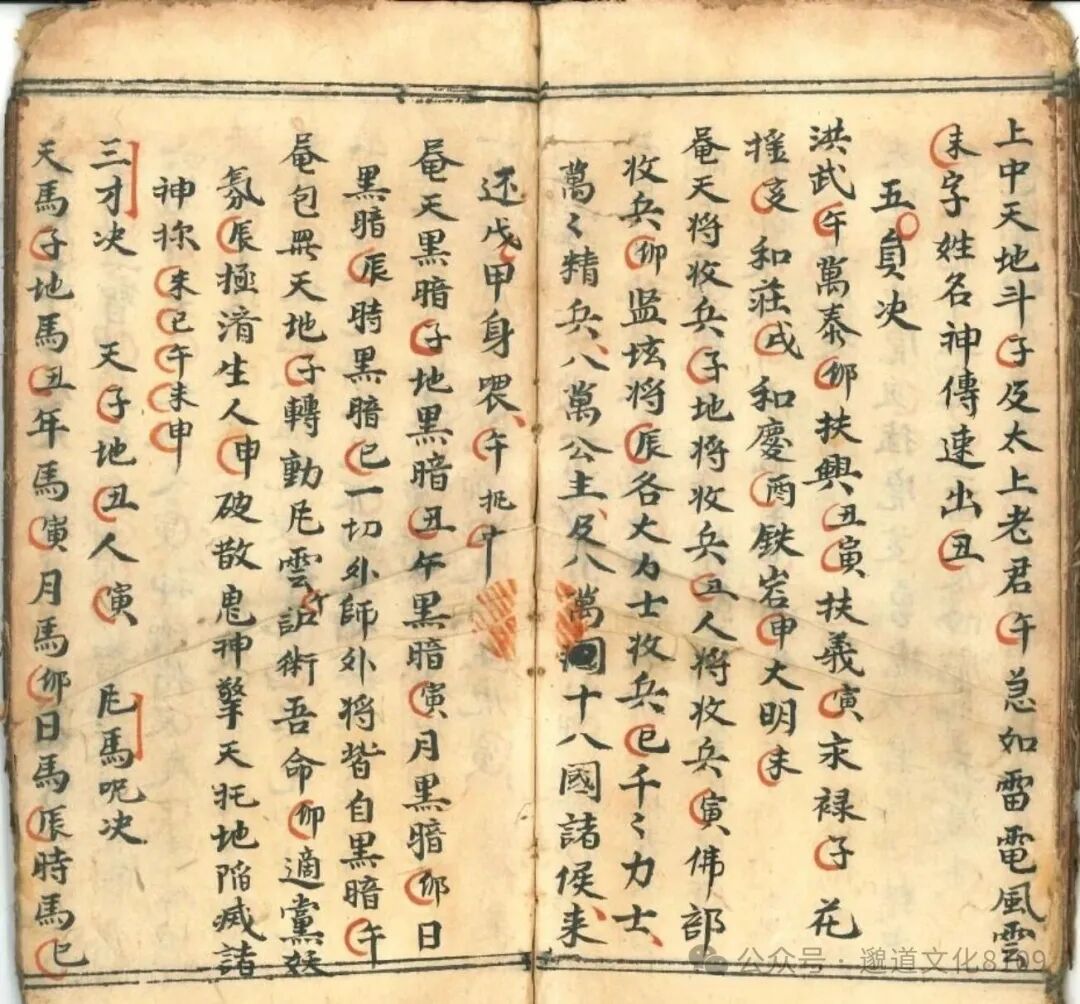 上中天地斗子及太上老君午急如雷電風雲
未字姓名神傳速出丑
五員决
洪武午萬泰卯扶興丑寅扶義寅求禄子花
和莊戌和慶酉鉄岩申大明未
奄天将收兵子地将收兵丑人将收兵寅佛部
收兵卯监坛将辰各大力士收兵巳千〻力士
萬〻精兵八萬公主及八萬国十八國諸侯来
还戊甲身喂午扼中
奄天黑暗子地黑暗丑年黑暗寅月黑暗卯日
黑暗辰時黑暗巳一切外師外将皆自黑暗午
奄包羅天地子轉動尼雲訣術吾命卯適黨妖
氛辰極濟生人申破散鬼神擎天托地陷滅諸
神你未巳午未申
三才决 天子地丑人寅 尼馬呢决
天馬子地馬丑年馬寅月馬卯日馬辰時馬巳
公众号·邈道文化8109